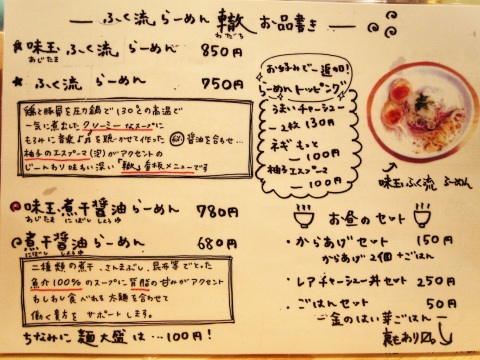 ふく流 らーめん 轍 お品書き
わだち
★ 味玉 ふく流 らーめん 850円
あじたま
★ ふく流 らーめん 750円
鶏と豚骨を圧力鍋で130℃の高温で
一気に煮出したクリーミーなスープに
醤油を合わせ…
柚子のエスプーマ(泡)がアクセントの
じーんわり味わい深い「轍」看板メニューです
お好みで一返加!
らーめんトッピング
うまいチャーシュー
2枚 130円
ネギもっと
100円
柚子エスプーマ
100円
味玉ふく流 らーめん
味玉煮干醤油らーめん 780円
あじたま にぼし しょうゆ
煮干醤油らーめん 680円
にぼし しょうゆ
二種類の煮干、さんまぶし、昆布等でとった
魚介100%のスープに背脂の甘みがアクセント
わしわし食べれる太麺を合わせて
働く貴方をサポートします。
ちなみに 麺大盛は…100円!
お昼のセット
・からあげセット 150円
からあげ2個+ごはん
・レアチャーシュー丼セット 250円
・ごはんセット 50円
金のはい芽ごはん
裏もありマス。